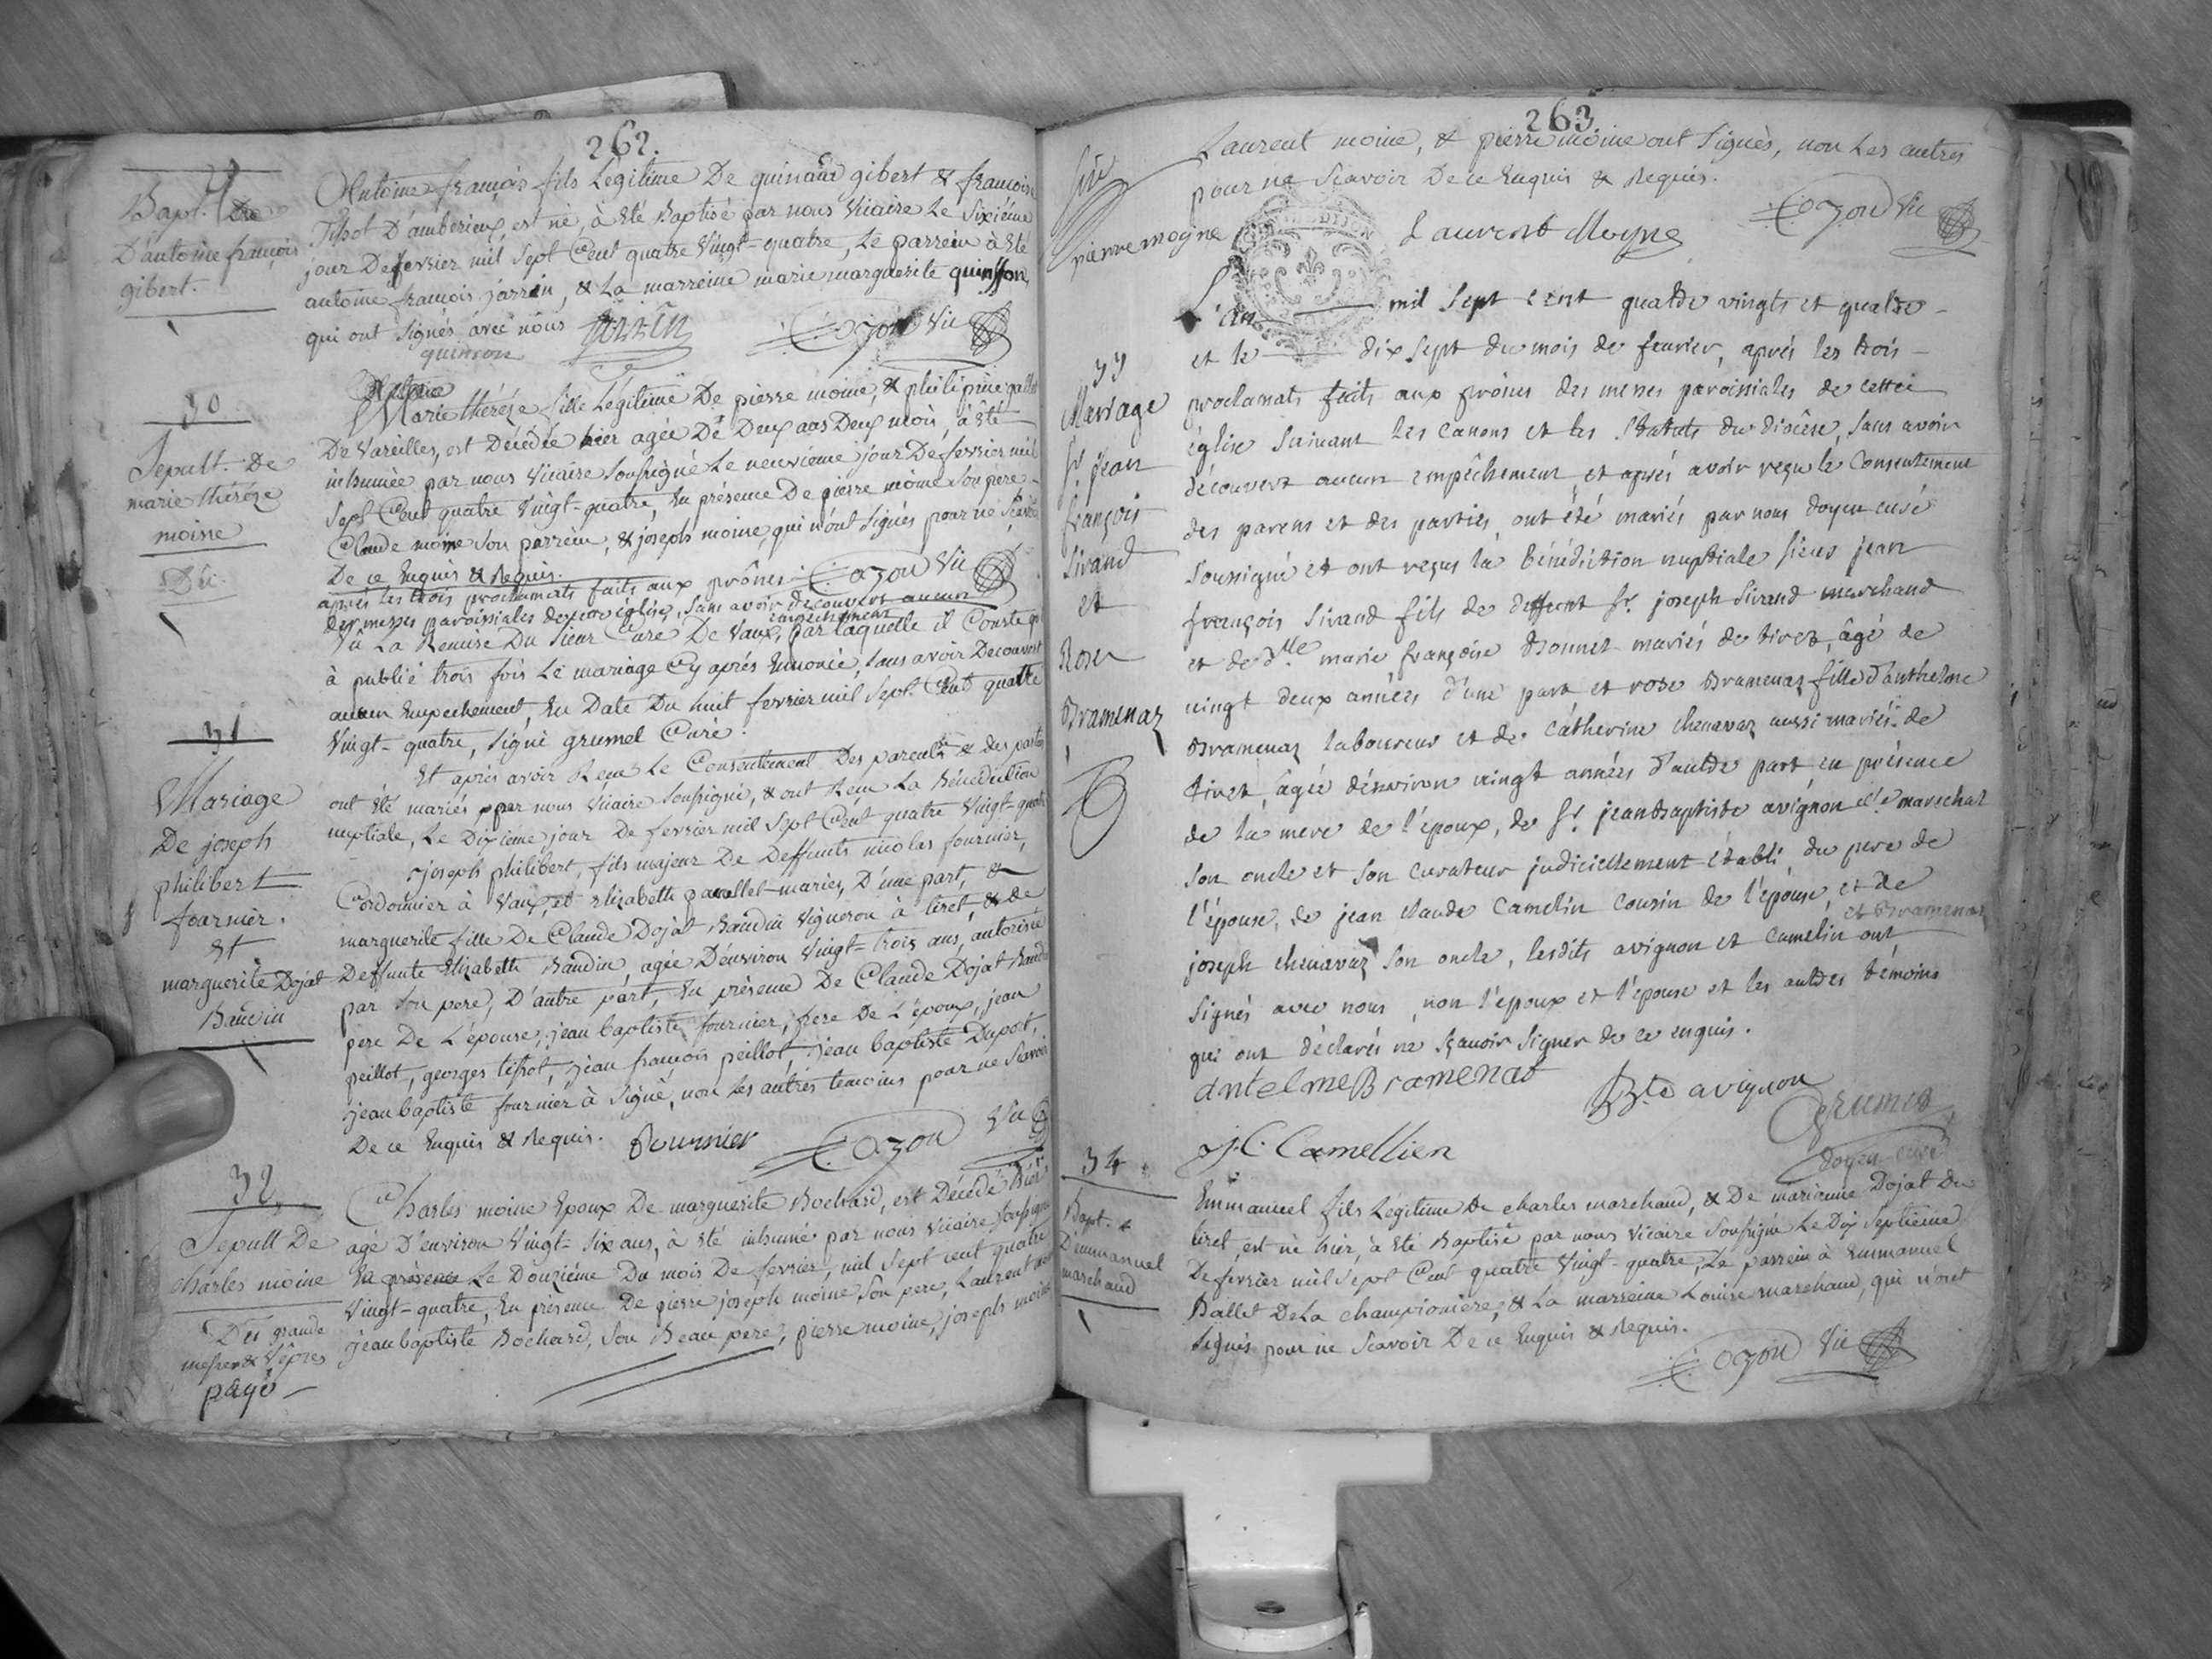 262.
Bapt.
D'antoine françois
gibert.
Antoine françois fils Légitime De quinaud gibert & françoise
Tissot D'amberieux, est né, à été Baptisé par nous Vicaire Le Sixiéme
jour De fevrier mil Sept Cent quatre Vingt-quatre, Le parrein à été
antoine françois jarrin, & La marreine marie marguerite quinsson,
qui ont Signés avec nous Jarrin Cozon Vic
quinson
30
Sepult. De
marie thérèze
moine
Dû.
Marie thérèze fille Légitime De pierre moine, & philipine gallet
De Vareilles, est Décédée hier agée De Deux ans Deux mois, à été
inhumée par nous Vicaire Soussigné Le neuvieme jour De fevrier mil
Sept Cent quatre Vingt-quatre, En présence De pierre moine Son père
Claude moine Son parrein, & joseph moine, qui n'ont Signés pour ne Scavoir
De ce Enquis & Requis. Cozon Vic
aprés les trois proclamats faits aux prônes
des messes paroissiales de notre église, sans avoir découvert aucun
empechement
31
Mariage
De joseph
philibert
fournier.
Et
marguerite Dojat
Baudin
Vû La Remise Du Sieur Curé De Vaux, par laquelle il Conste qu'il
à publié trois fois Le mariage Cy aprés Enoncé, Sans avoir Decouvert
aucun Empechement, En Date Du huit fevrier mil Sept Cent quatre
Vingt-quatre, Signé grumel Curé.
Et aprés avoir Reçu Le Consentement Des parents & des parties
ont été mariés par nous Vicaire Soussigné, & ont Reçu La Bénédiction
nuptiale, Le Dixieme jour De fevrier mil Sept Cent quatre Vingt-quatre
joseph philibert, fils majeur De Deffunts nicolas fournier,
Cordonnier à Vaux, et Elizabeth pavallet mariés, D'une part, &
marguerite fille De Claude Dojat Baudin Vigneron à tiret, & de
Deffunte Elizabeth Baudin, agée D'environ Vingt-trois ans, autorisée
par Son pere, D'autre part, En présence De Claude Dojat Baudin
pere De L'épouse, jean baptiste fournier, frere De L'époux, jean
peillot, georges tissot, jean françois peillot, jean baptiste Duport,
jean baptiste fournier à Signé, non les autres temoins pour ne Scavoir
De ce Enquis & Requis. Fournier Cozon Vic
32
Sepult De
charles moine
Dû grande
messe & Vêpres
payé
Charles moine Epoux De marguerite Bochard, est Décédé hier
agé D'environ Vingt-Six ans, à été inhumé par nous Vicaire Soussigné
En présence Le Douziéme Du mois De fevrier, mil Sept cent quatre
Vingt-quatre, En présence De pierre joseph moine Son pere, Laurent moine
jean baptiste Bochard, Son Beau pere, pierre moine, joseph moine
263.
Laurent moine, & pierre moine ont Signés, non Les autres
pour ne Scavoir De ce Enquis & Requis.
pierre moyne Laurent Moyne Cozon Vic
33
Mariage
Sr. jean
françois
Sirand
et
Rose
Bramenaz
L'an mil Sept cent quatre vingts et quatre
et le dix Sept du mois de fevrier, aprés les trois
proclamats faits aux prônes des messes paroissiales de cette
église Suivant les Canons et les Statuts du diocèse, Sans avoir
découvert aucun empêchement, et aprés avoir reçu le Consentement
des parens et des parties, ont été mariés par nous doyen curé
Soussigné et ont reçus la bénédiction nuptiale Sieur jean
françois Sirand fils de deffunt Sr. joseph Sirand marchand
et de dlle marie françoise Bonnet mariés de tiret, âgé de
vingt deux années d'une part et rose Bramenaz fille d'anthelme
Bramenaz laboureur et de Cátherine chenavaz aussi mariés de
tiret, âgée d'environ vingt années d'autre part, en présence
de la mere de l'époux, de Sr. jean baptiste avignon Me marechal
Son oncle et Son Curateur judiciellement établi, du pere de
l'épouse, de jean claude Camelin Cousin de l'épouse, et de
joseph chenavaz Son oncle, lesdits avignon et Camelin et Bramenaz ont
Signés avec nous, non l'époux et l'épouse et les autres témoins
qui ont déclarés ne Sçavoir Signer de ce enquis.
antelme Bramenat Bte avignon
Grumet
J.C. Camellien doyen curé
34.
Bapt.
D'emmanuel
marchand
Emmanuel fils Légitime De charles marchand, & De marianne Dojat Du
tiret, est né hier, à été Baptisé par nous Vicaire Soussigné Le Dix Septiéme
De fevrier mil Sept Cent quatre Vingt-quatre, Le parrein à Emmanuel
Ballet De La championiere, & La marreine Louise marchand, qui n'ont
Signés pour ne Scavoir De ce Enquis & Requis.
Cozon Vic